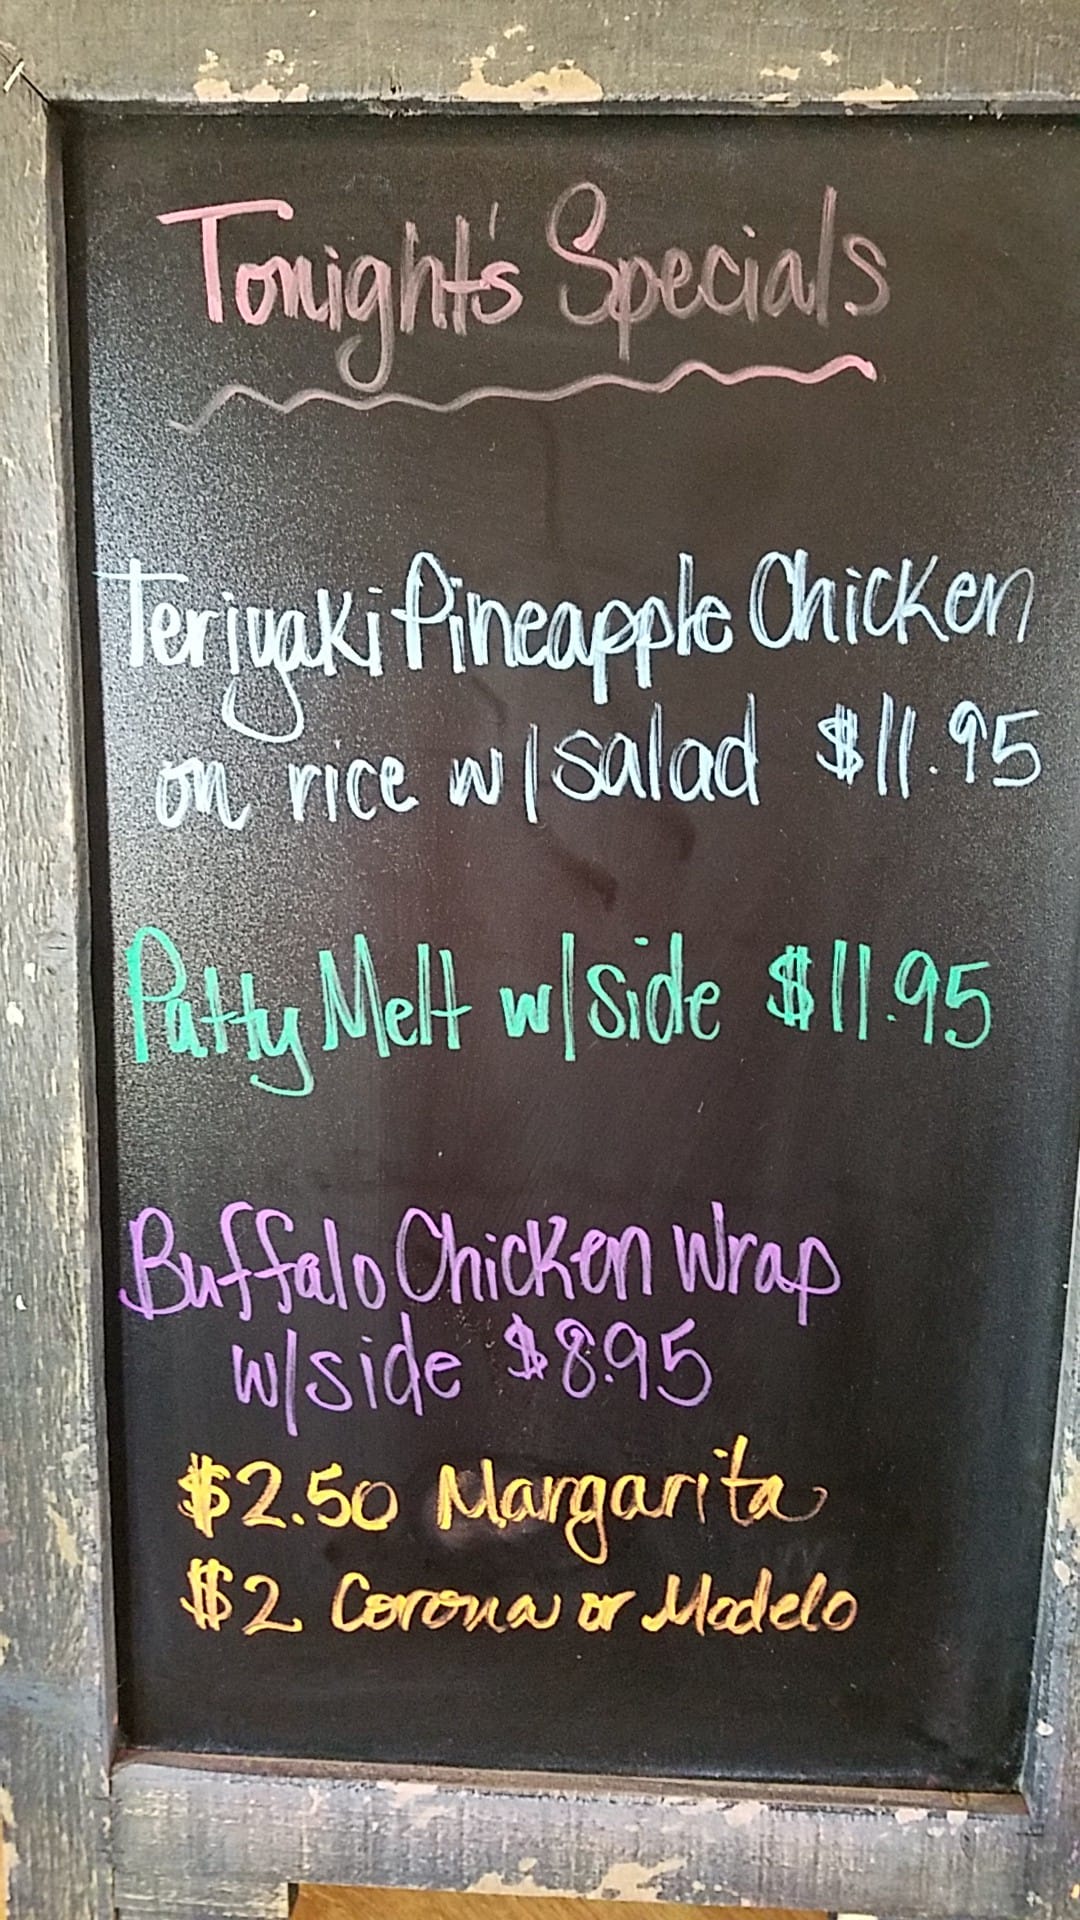 Tonight's Specials
Teriyaki Pineapple Chicken
on rice w/salad $11.95
Patty Melt w/side $11.95
Buffalo Chicken Wrap
w/side $8.95
$2.50 Margarita
$2 Corona or Modelo